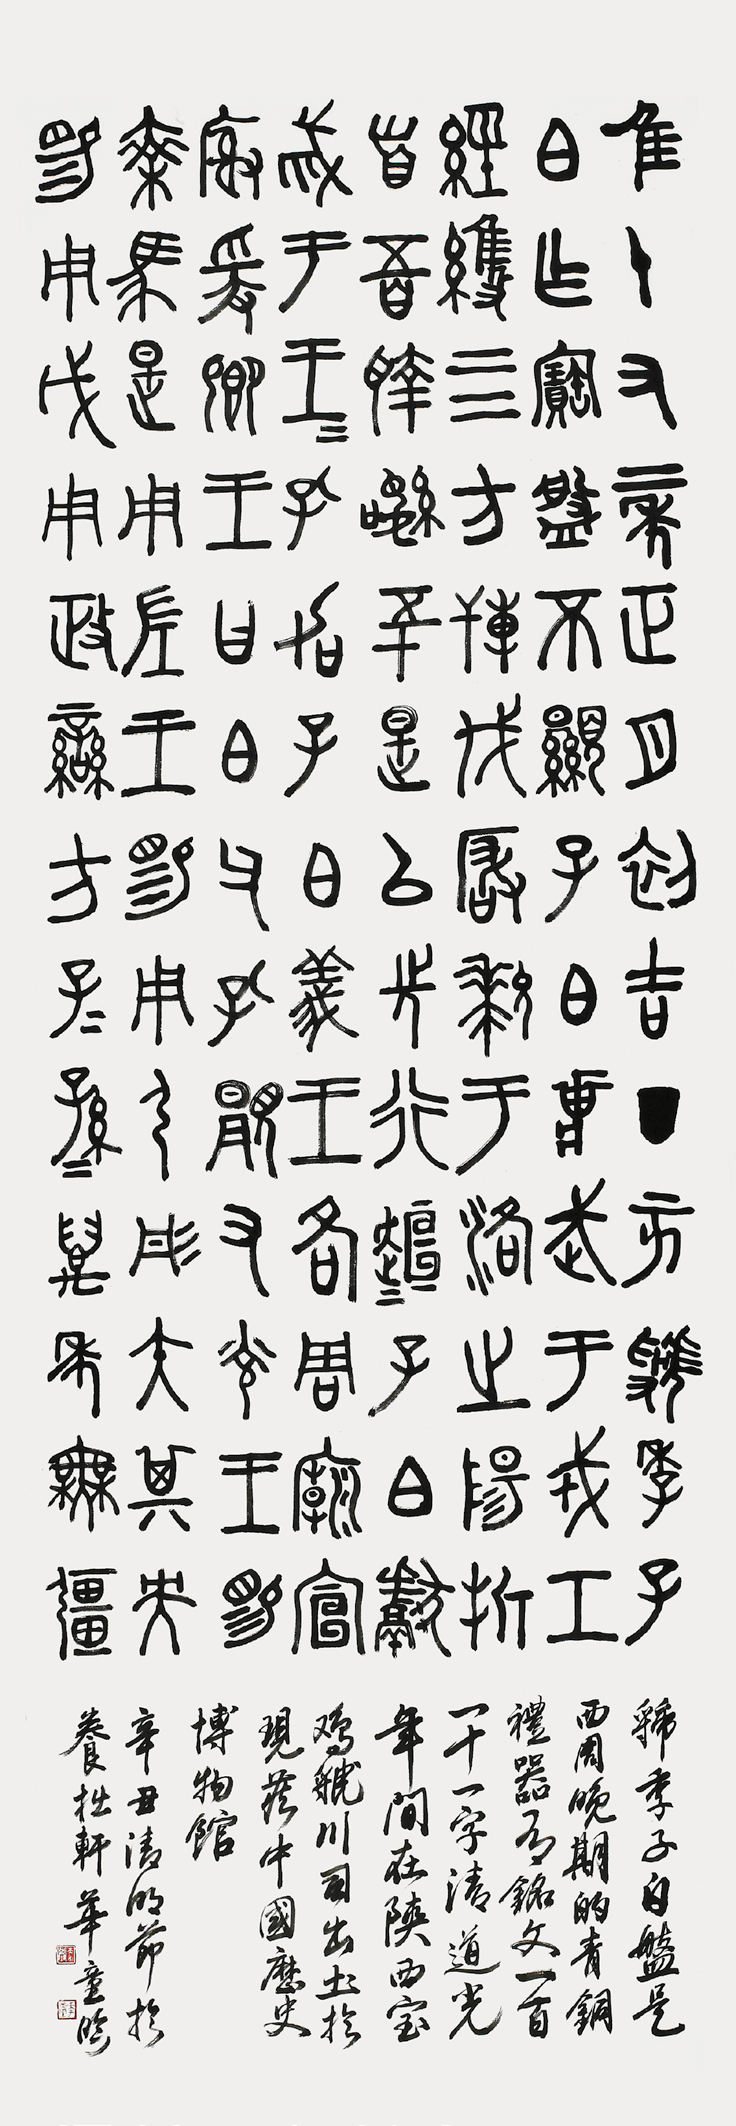 隹十又二年正月初吉丁亥虢季子
白乍寶盤不顯子白壯武于戎工
經維四方搏伐玁狁于洛之陽折
首五百執訊五十是以先行趄=子白獻
聝于王=孔加子白義王各周廟宣
榭爰卿王曰白父孔顯又光王賜
乘馬是用左王賜用弓彤矢其央
賜用戉用政蠻方子=孫=萬年無疆
虢季子白盤是
西周晚期的青銅
禮器有銘文一百
一十一字清道光
年間在陝西宝
鸡虢川司出土於
現藏中國歷史
博物館
辛丑清明節於
養拙軒華童